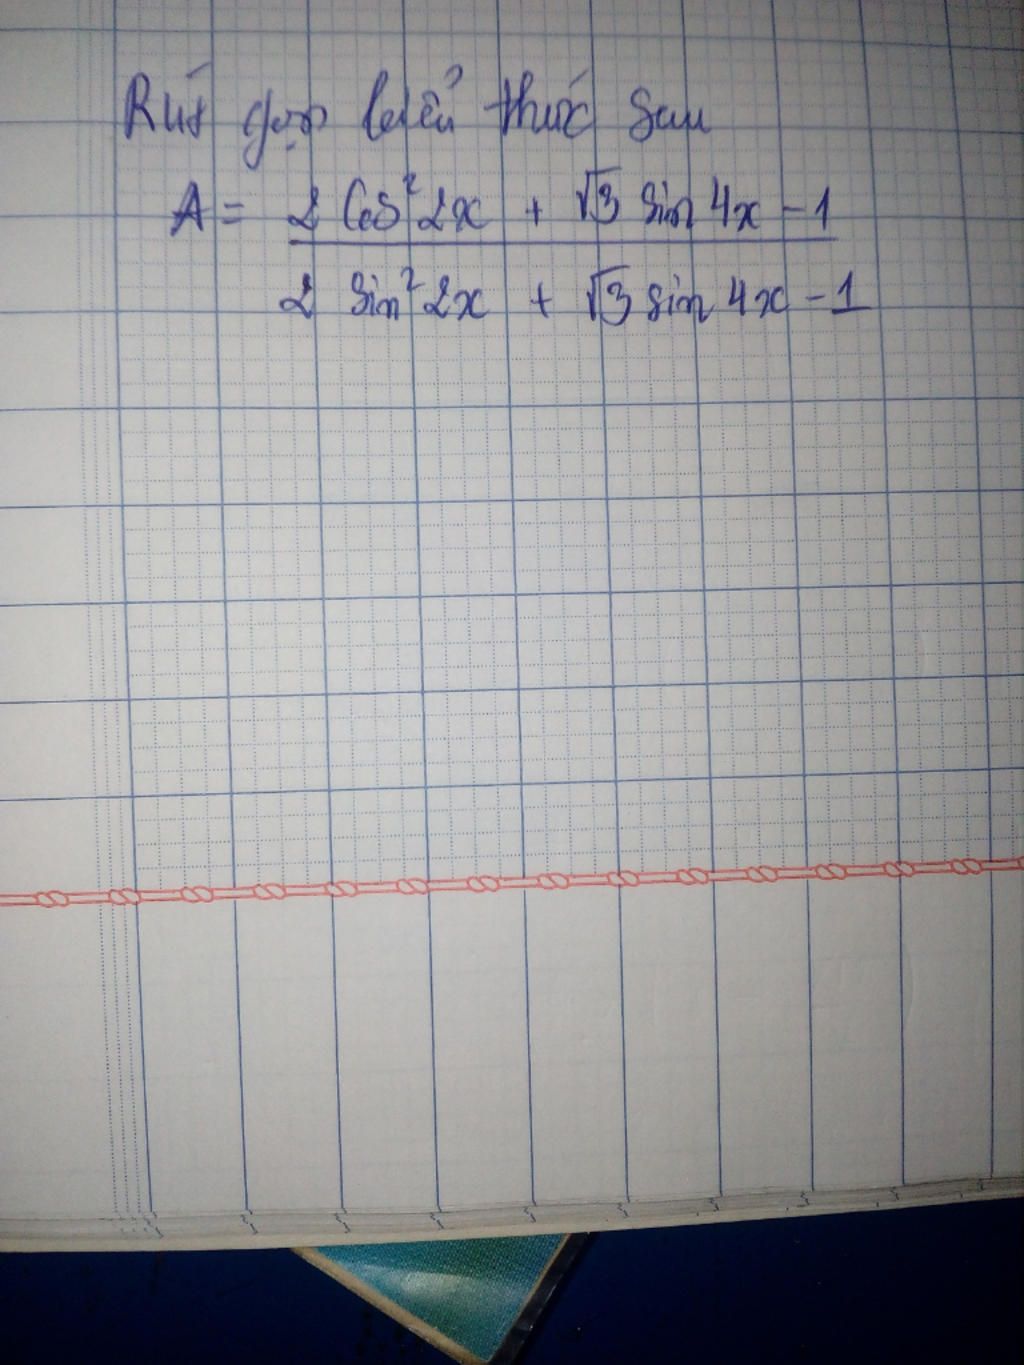 Rút gọn biểu thức sau
A = 2 Cos² 2x + √3 sin 4x - 1
2 sin² 2x + √3 sin 4x - 1